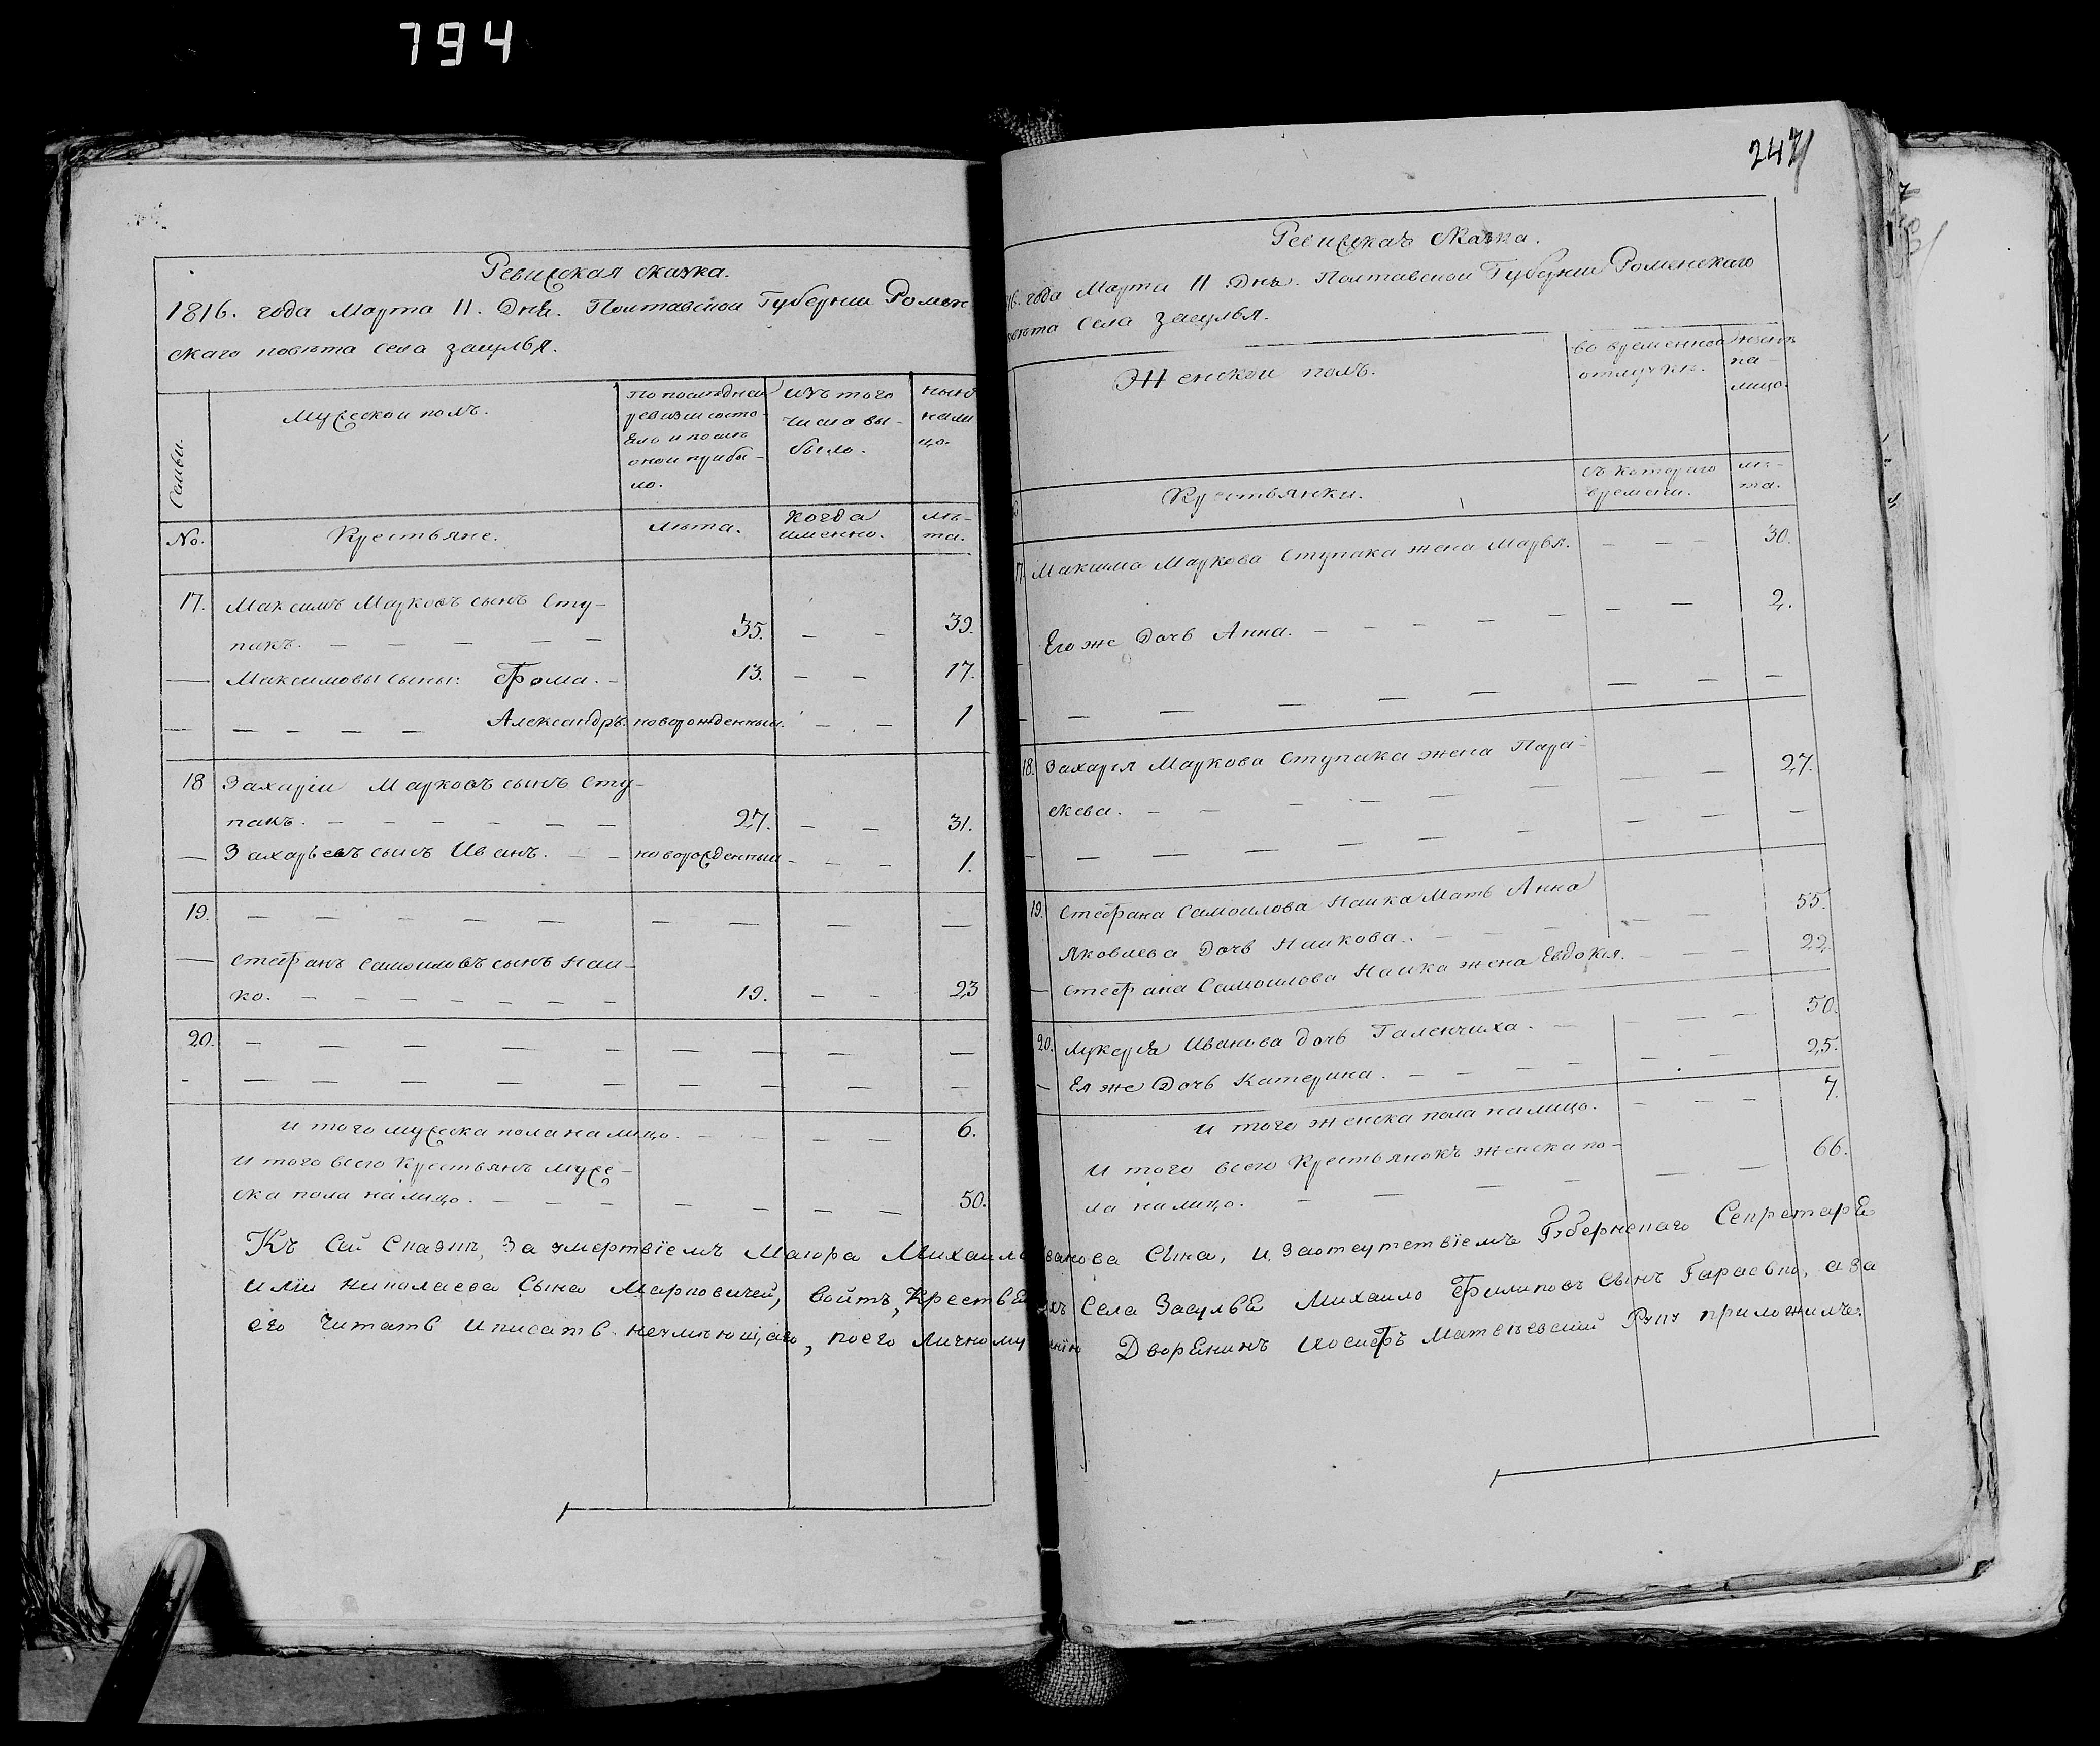 794
Ревижская сказка.
1816. года Марта 11. Дня. Полтавской Губернии Ромен
скаго повѣта села засулья.
Семьи.
Мужескои полъ.
По последнеи
ревизии состо
яло и послѣ
онои прибы-
ло.
изъ того
числа вы-
было.
нынѣ
нали
цо.
No.
Крестьяне.
лѣта.
когда
именно.
лѣ-
та.
17. Максимъ Марковъ сынъ Сту-
пакъ. — — — — — 35. — — 39.
— Максимовы сыны: Фома. — 13. — — 17.
— — — — — Александръ. новорожденный. — — 1
18 Захарiи Марковъ сынъ Сту-
пакъ. — — — — — — 27. — — 31.
— Захарьевъ сынъ Иванъ. — — новорожденный — — — 1.
19. — — — — — — — — —
— Стефанъ Самоиловъ сынъ Наи-
ко. — — — — — — — 19. — — 23
20. — — — — — — — — —
- — — — — — — — —
и того мужеска пола налицо. — — — — 6.
и того всего Крестьянъ муже-
ска пола налицо. — — — — — — — 50.
247
Ревижская Сказка.
816. года Марта 11 Дня. Полтавской Губернии Роменскаго
повѣта Села Засулья.
Женскои полъ.
во временнои
отлучкѣ.
нынѣ
на-
лицо.
Крестьянки.
съ котораго
времени.
лѣ-
та.
17. Максима Маркова Ступака жена Марья. — — — 30.
Его же Дочь Анна. — — — — — — 2.
— — — — — — — — — —
18. Захарiя Маркова Ступака жена Пара-
скева. — — — — — — — 27.
— — — — — — — — —
19. Стефана Самоилова Наика Мать Анна
Яковлева Дочь Наикова. — — — — — 55.
— Стефана Самоилова Наика жена Евдокiя. — — — 22.
20. Лукерiя Иванова дочь Галенчиха. — — — — 50.
— Ея же Дочь Катерина. — — — — — — 25.
и того женска пола налицо. — — — 7.
и того всего Крестьянокъ женска по-
ла налицо. — — — — — — 66.
Къ сей Сказкѣ, За умертвїемъ Маiора Михаила Иванова Сына, и заотсутствїемъ Губернскаго Секретаря
Илїи Николаева Сына Марковичей, войтъ, Крестьянъ Села Засулья Михайло Филиповъ Сынъ Гараевко, а за
его Читать иписать неумѣющаго, поего личному прошенїю Дворянинъ Иосифъ Матвѣевский Руку приложилъ.